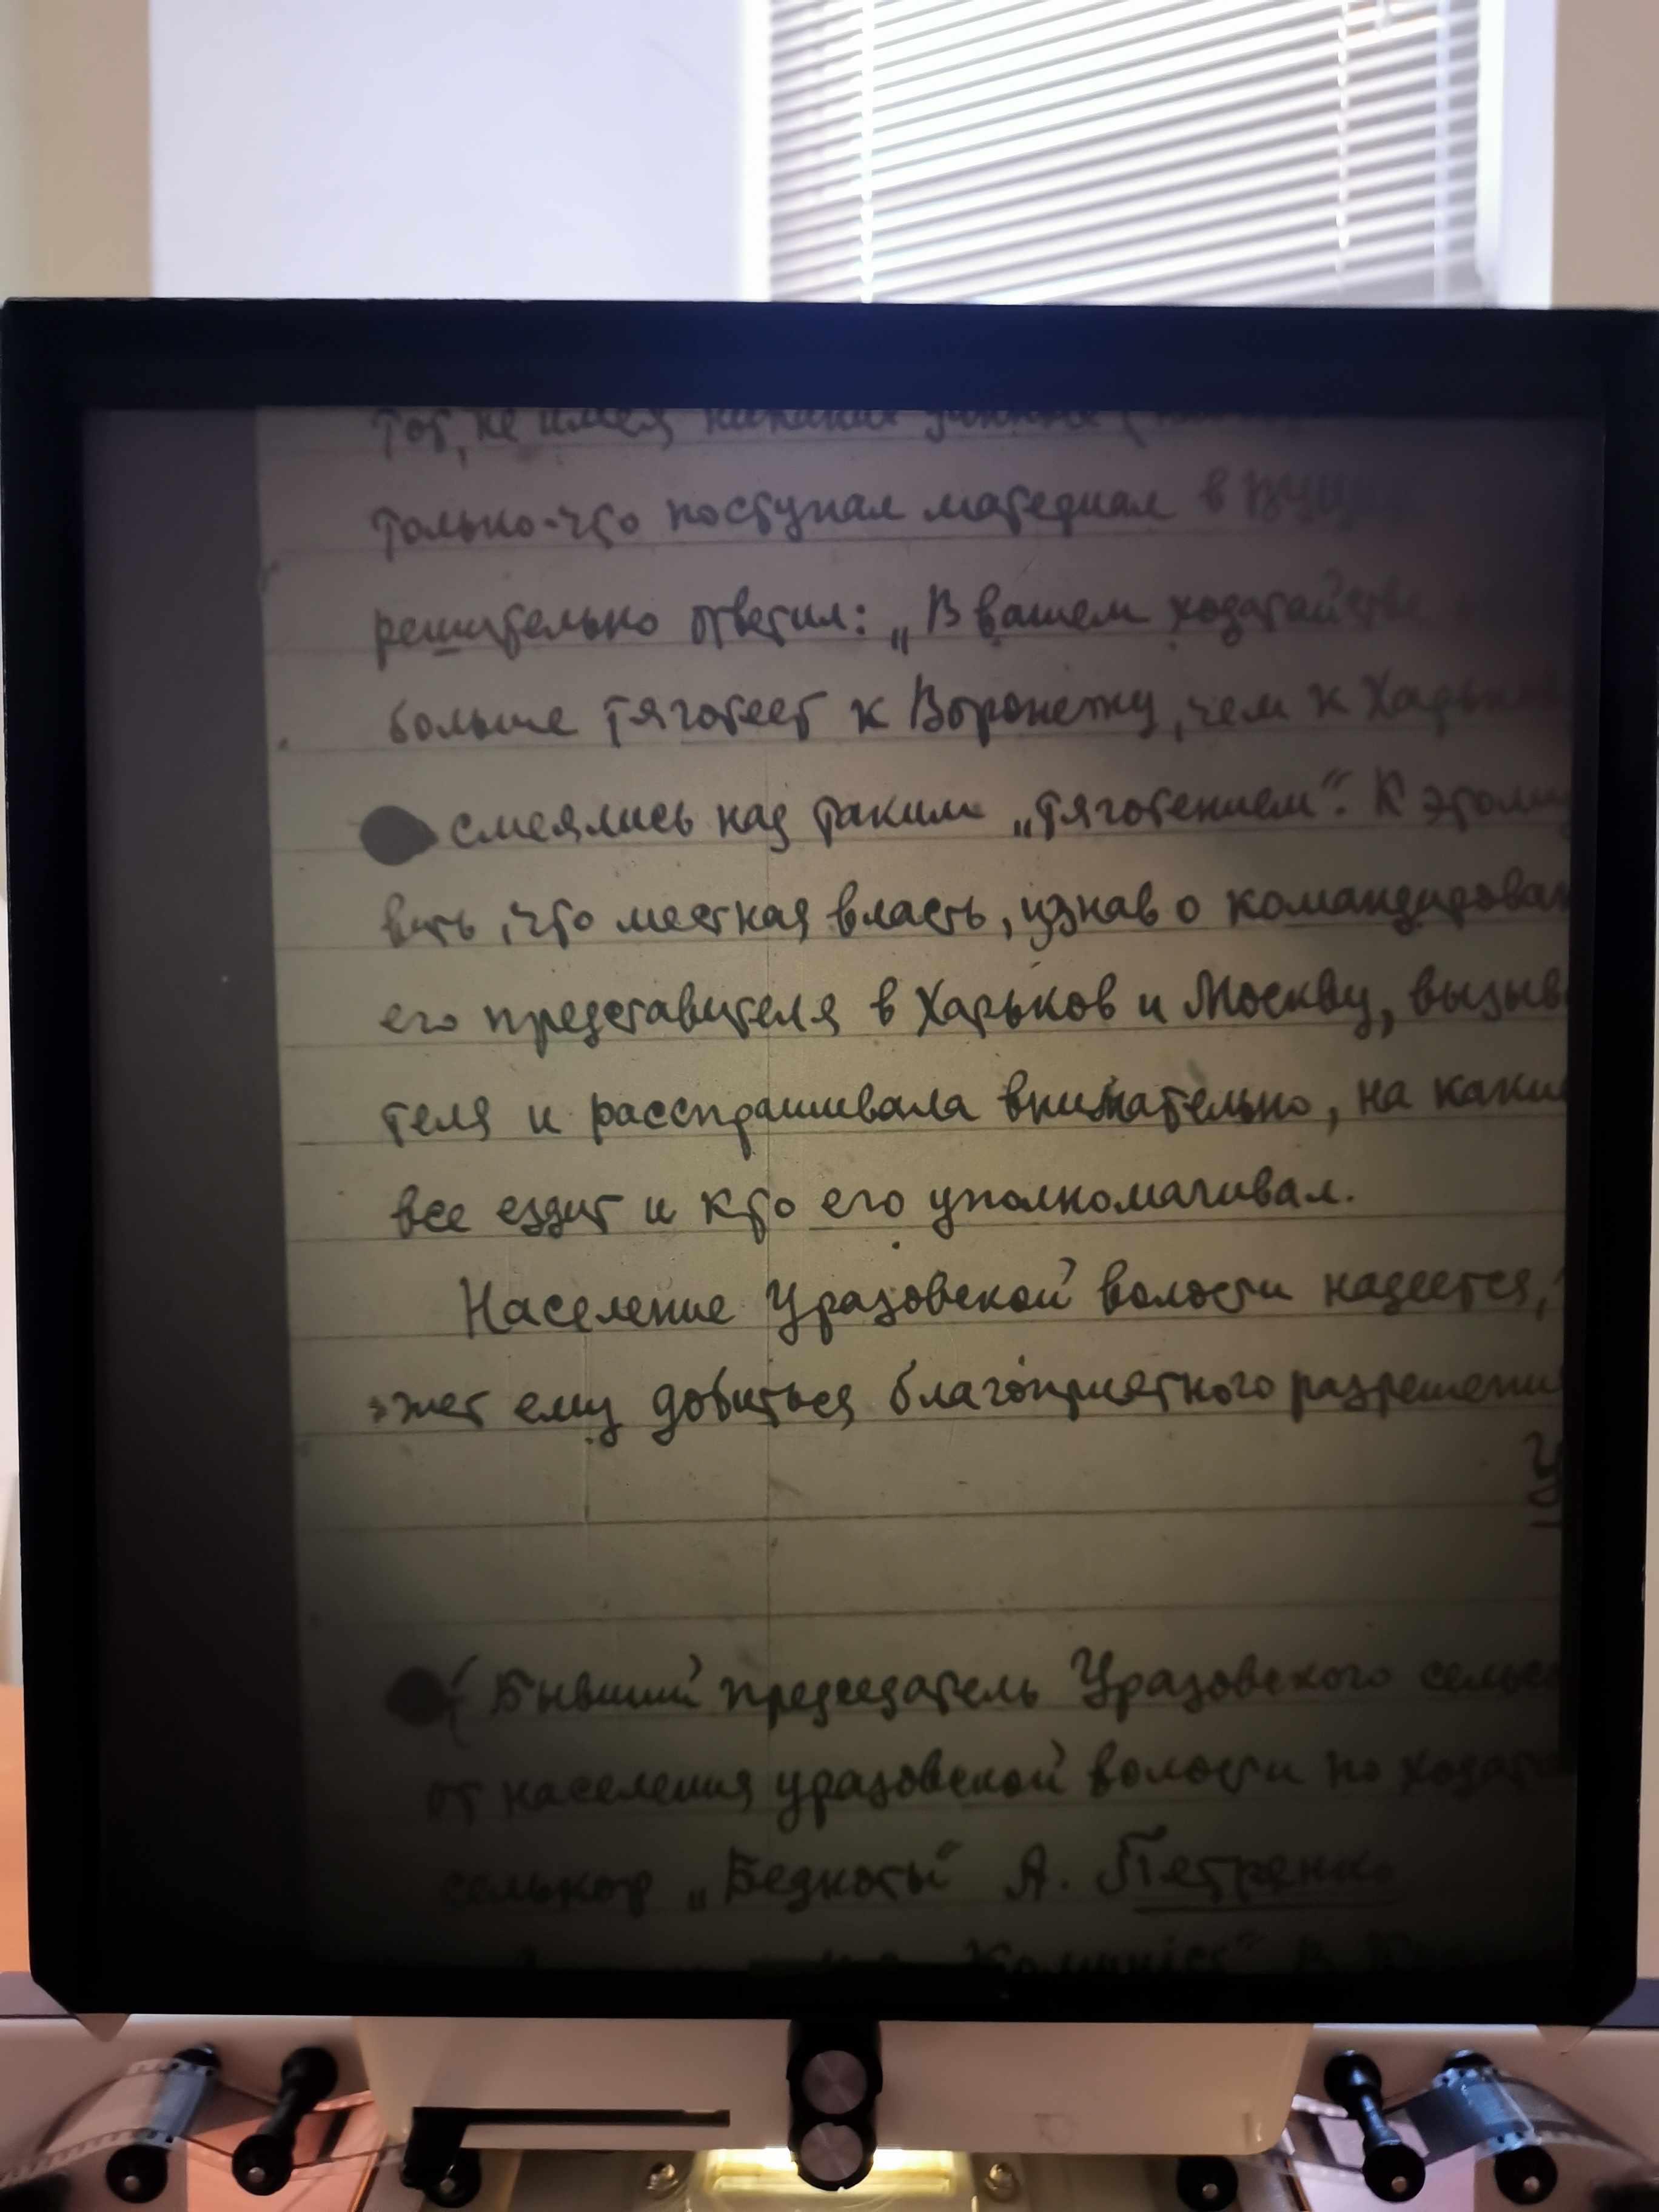 тот, не имея никаких
только-что поступал материал в
решительно ответил: „В вашем ходатайстве
больше тяготеет к Воронежу, чем к Харьков
смеялись над таким „тяготением“. К этому
вить, что местная власть, узнав о командирован
его представителя в Харьков и Москву, вызыв
теля и расспрашивала внимательно, на каки
все ездит и кто его уполномачивал.
Население Уразовской волости надеется,
жет ему добиться благоприятного разрешени
(Бывший председатель Уразовского сельс
от населения уразовской волости по ходат
селькор „Бедноты“ А. Петренко
„Комуніст“ В